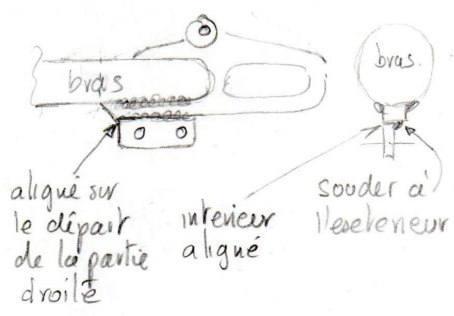 bras
bras.
aligné sur
le départ
de la partie
droite
interieur
aligné
souder à
l'exterieur